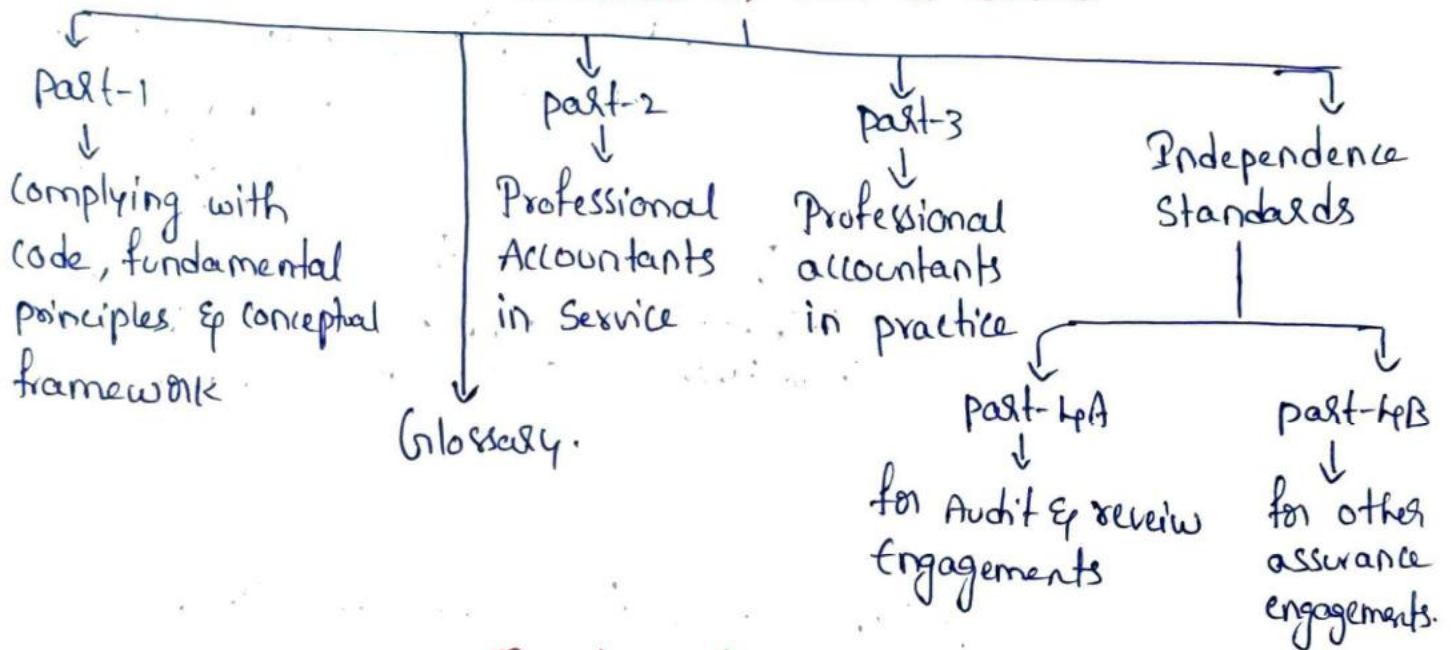 Part-1
Complying with
code, fundamental
principles & conceptual
framework
Glossary.
part-2
Professional
Accountants
in Service
part-3
Professional
accountants
in practice
Independence
Standards
part-4A
for Audit & reveiw
Engagements
part-4B
for other
assurance
engagements.